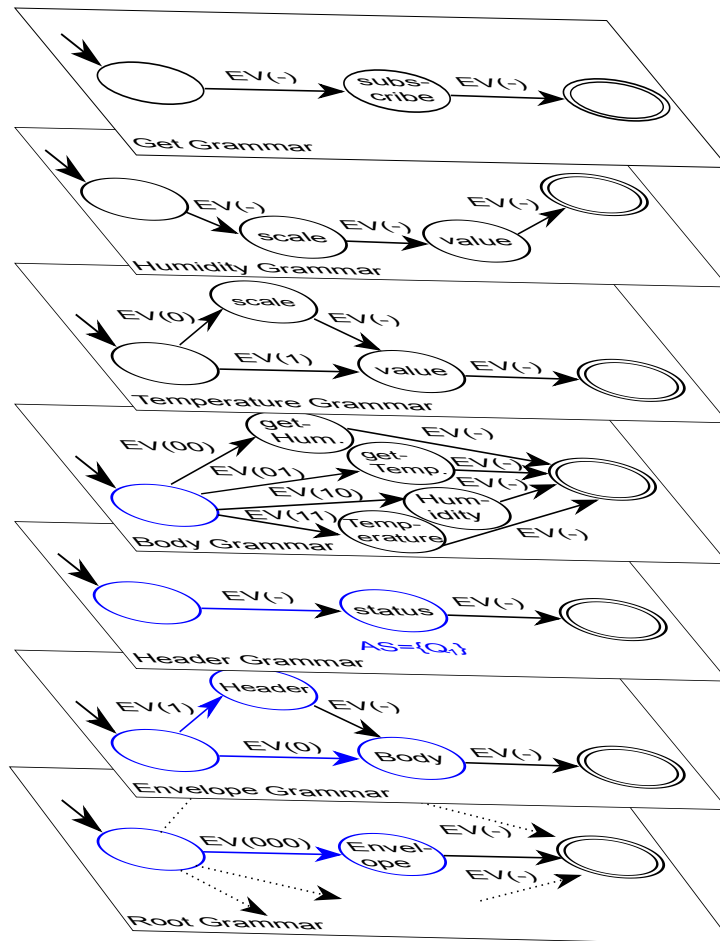 EV(-)
subs-
cribe
EV(-)
Get Grammar
EV(-)
scale
EV(-)
value
EV(-)
Humidity Grammar
EV(0)
scale
EV(-)
EV(1)
value
EV(-)
Temperature Grammar
EV(00)
get-
Hum.
EV(-)
EV(01)
get-
Temp.
EV(-)
EV(10)
Hum-
idity
EV(-)
EV(11)
Temp-
erature
EV(-)
Body Grammar
EV(-)
status
EV(-)
AS={Q₁}
Header Grammar
EV(1)
Header
EV(-)
EV(0)
Body
EV(-)
Envelope Grammar
EV(000)
Envel-
ope
EV(-)
EV(-)
Root Grammar